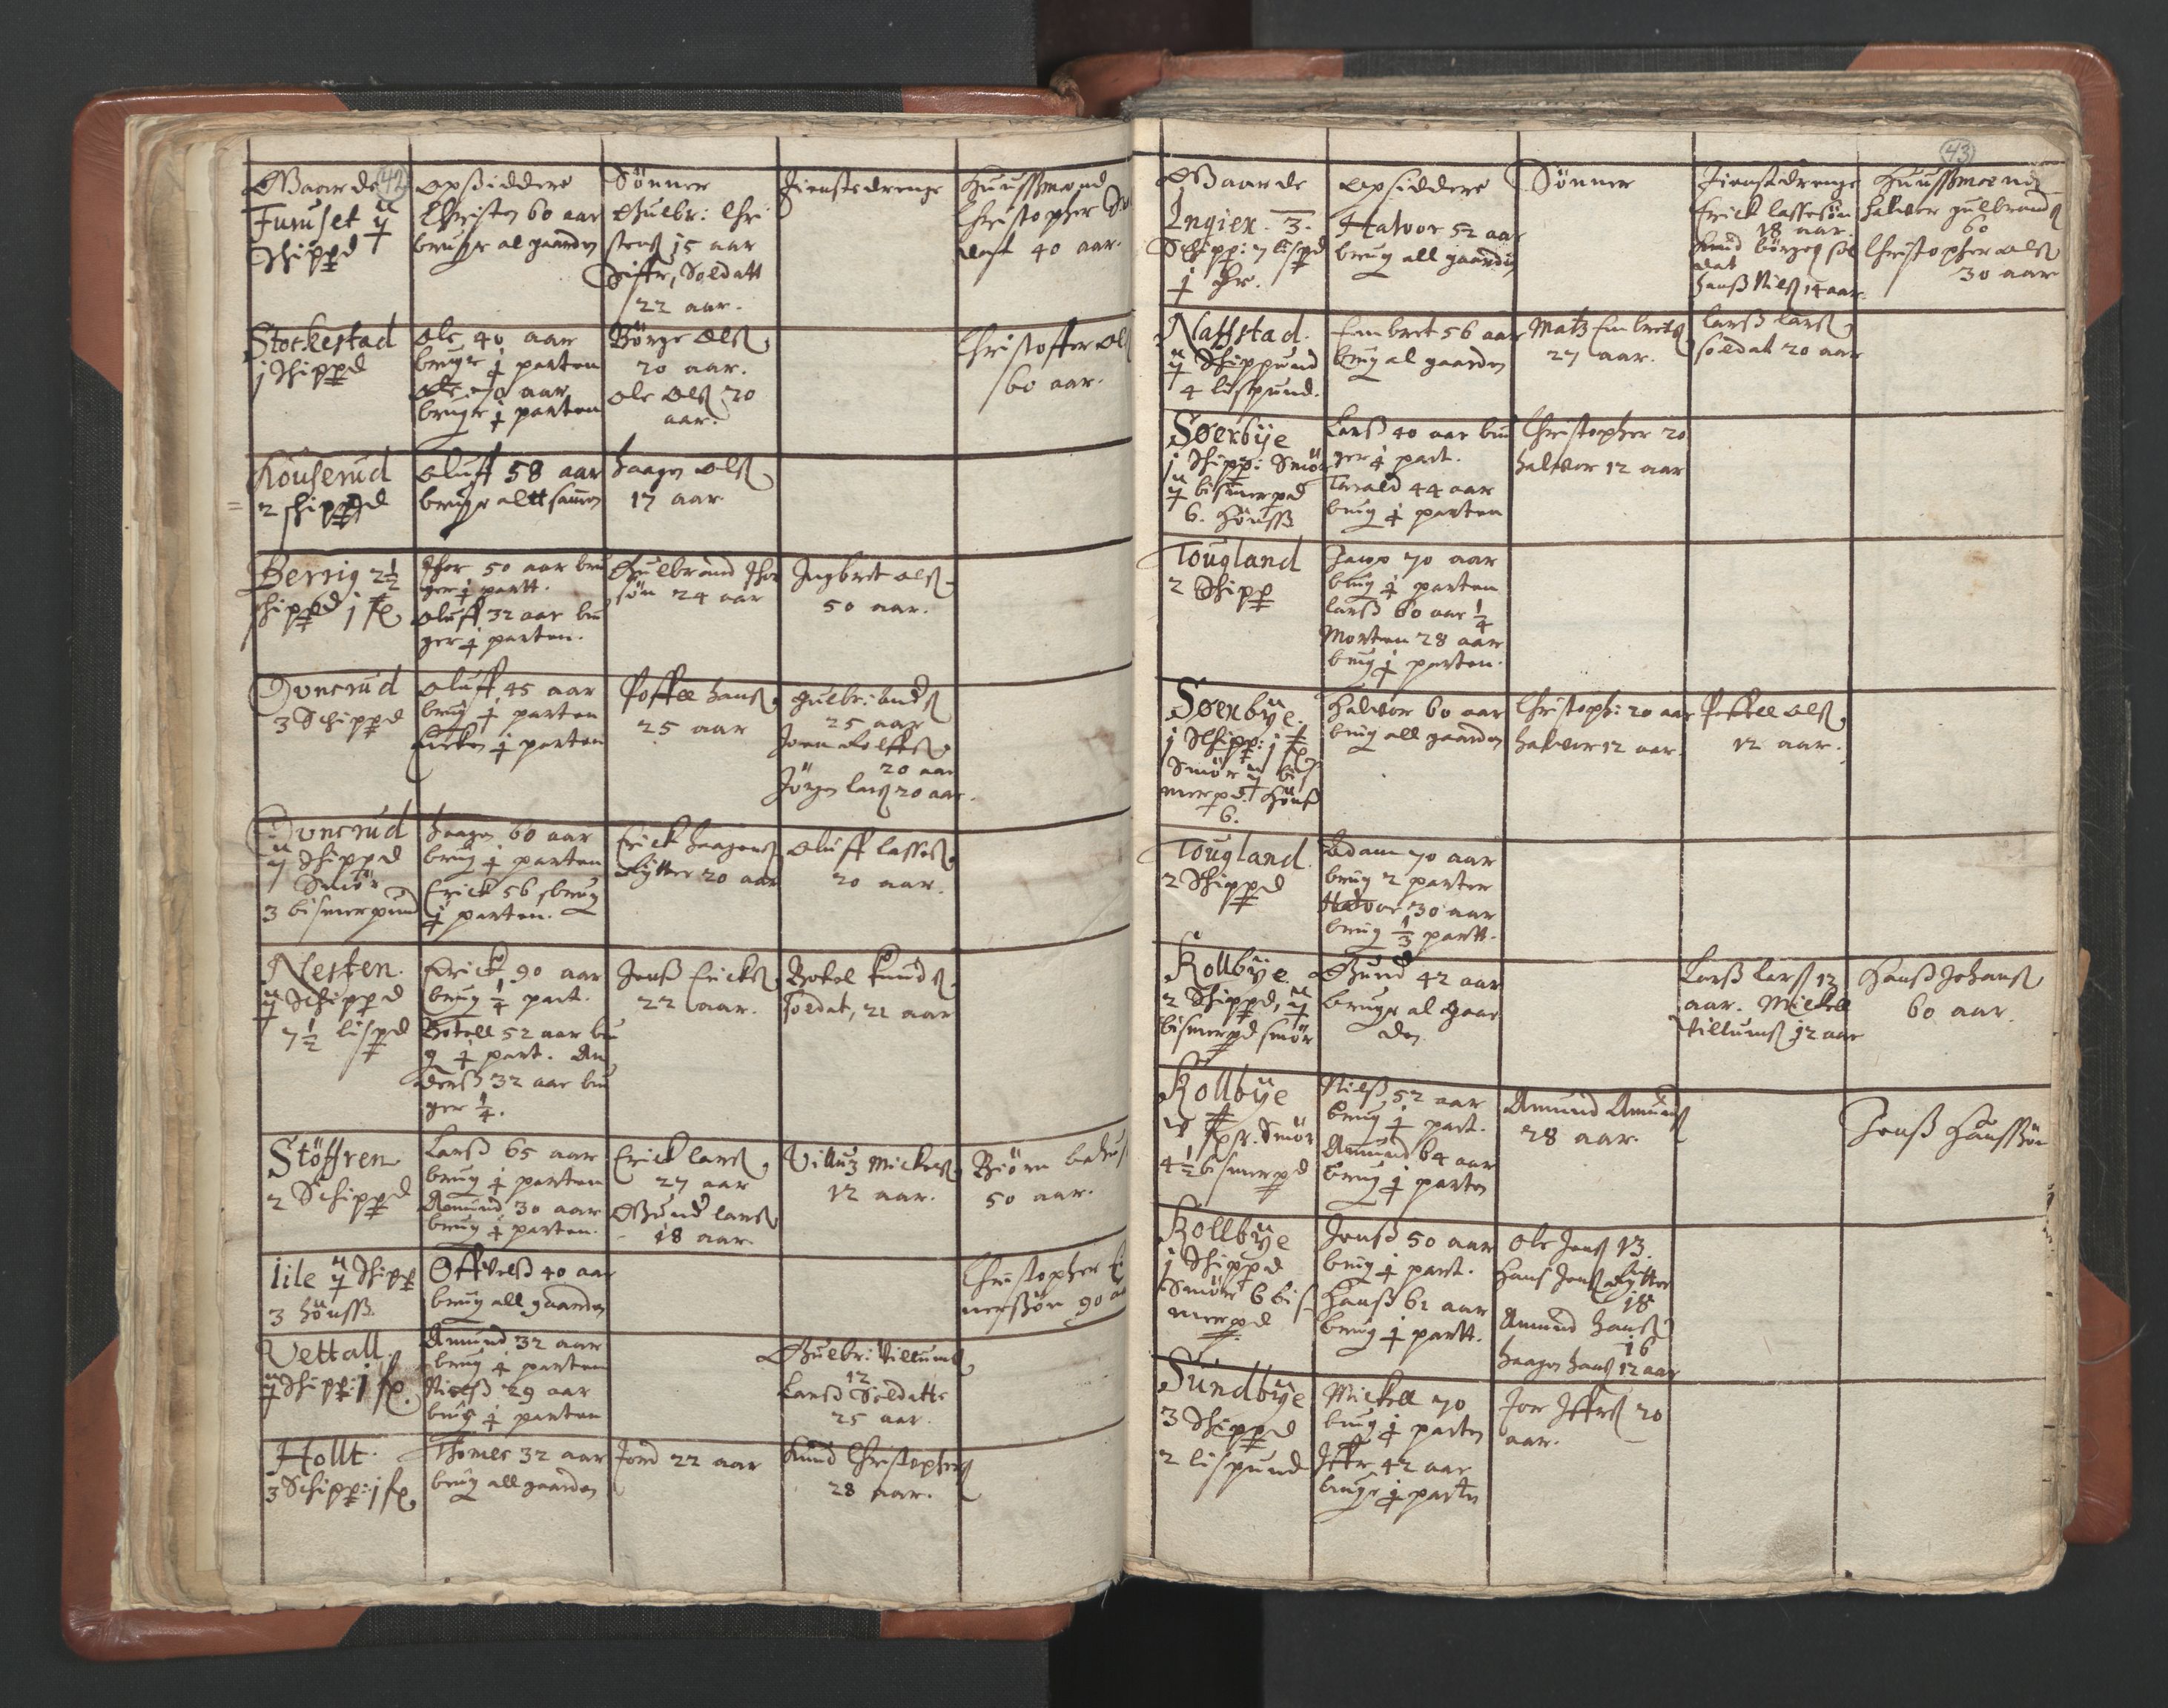 42
Gaarde
Opsiddere
Sönner
Tienstedrenge
Huussmend
Furuset
Schippd
Christen 60 aar
bruge al gaarden
Gulbr: Chri
stens 15 aar
Siffr, Soldatt
22 aar.
Christopher
40 aar.
Stockestad
j Schippd
Ole 40 aar
bruger ½ parten
Ole 70 aar
bruger ½ parten
Börge Olß
20 aar.
Ole Olß 20
aar.
Christoffer Ol
60 aar.
Kouserud
2 schippd
Oluff 58 aar
bruger altt samen
Haagen Olß
17 aar
Berrig 2½
schippd j
Thor 50 aar bru
ger ½ partt.
Oluff 32 aar bru
ger ½ parten.
Gulbrand Thor
sön 24 aar
Ingbret Olß
50 aar.
Duncrud
3 Schippd
Oluff 45 aar
brug ½ parten
Encken ½ parten
Poffel Hanß
25 aar
Gulbr:
25 aar
20 aar
Jörgen Larß 20 aar.
Duncrud
Schippd
Smör
3 bismerpund
Haagen 60 aar
brug ½ parten
Erick 56 brug
½ parten.
Erick Haagens
Rytter 20 aar
Oluff Lasseß
20 aar.
Nesten.
Schippd
7½ lispd
Erick 90 aar
brug ¼ part.
Botell 52 aar bru
g ½ part. An
derß 32 aar bru
ger ¼.
Jenß Erickß
22 aar.
Botel Knudß
Soldat, 21 aar
Stöffren
2 Schippd
Larß 65 aar
brug ½ parten
Amund 30 aar
brug ½ parten.
Erick Larß
27 aar
Gund Larß
18 aar.
Villuz Mickelß
12 aar.
Biörn
50 aar.
Lile Schipp
3 hönß
40 aar
brug all gaarden
Christopher
nerssön 90
Vettall.
Schipp: j
Amund 32 aar
brug ½ parten
Nielß 29 aar
brug ½ parten
Gulbr: Villumß
12
Larß Soldatt
25 aar.
Hollt.
3 Schipp: j
Thomes 32 aar
brug all gaarden
Jord 22 aar
Knud Christophers
28 aar.
43
Gaarde
Opsiddere
Sönner
Tienstedrenge
Huussmend
Ingier. 3.
Schipp: 7 lispd
Halvor 52 aar
brug all gaarden
Erick Lassesön
18 aar.
Knud Börges sol
dat
Hanß Nilß 14 aar.
Halvor Gulbrands
60
Christopher Olß
30 aar
Naffstad.
Schippund
4 lispund.
Embret 56 aar
brug al gaarden
Matz Embretß
27 aar.
Larß Larß
soldat 20 aar
Söerbÿe
j Schipp: Smör
bismerpd
6. Hönß
Larß 40 aar bru
ger ½ part.
Tarald 44 aar
brug ½ parten
Christopher 20
Halvor 12 aar
Tougland
2 Schipp
70 aar
brug ½ parten
Larß 60 aar ¼
Morten 28 aar
brug ½ parten.
Söerbÿe.
j Schipp: j
Smör bis
merpd. Hönß
6.
Halvor 60 aar
brug all gaarden
Christoph: 20 aar
Halvor 12 aar.
Poffell Olß
12 aar.
Tougland.
2 Schippd
Adam 70 aar
brug 2 parter
Halvor 30 aar
brug ⅓ partt.
Kollbÿe
2 Schippd,
bismerpd smör
Gund 42 aar
bruger al gaar
den
Larß Larß 12
aar. Mickel
Villumß 12 aar
Hanß Johanß
60 aar.
Kollbÿe
Smör
4½ bismerpd
Nielß 52 aar
brug ½ part.
Amund 64 aar
brug ½ parten
Amund Amunß
28 aar.
Jenß Hanssön
Kollbÿe
j Schippd
Smör 6 bis
merpd
Jenß 50 aar
brug ½ part.
Hanß 62 aar
brug ½ partt.
Ole Jenß 13.
Hans Jenß Rytter
18
Amund Hanß
16
Haagen Hanß 12 aar
Sundbÿe
3 Schippd
2 lispund
Mickell 70
brug ½ parten
42 aar
bruger ½ parten
20
aar.